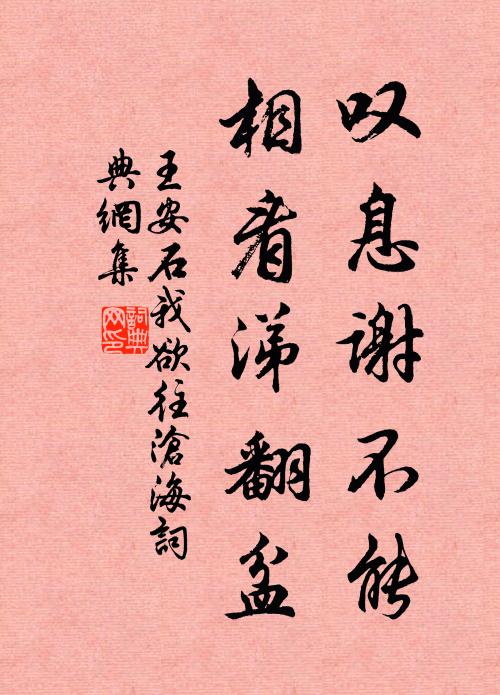 叹息谢不能
相看涕翻盆
王安石我欲往滄海詞
典網集
詞典
网印